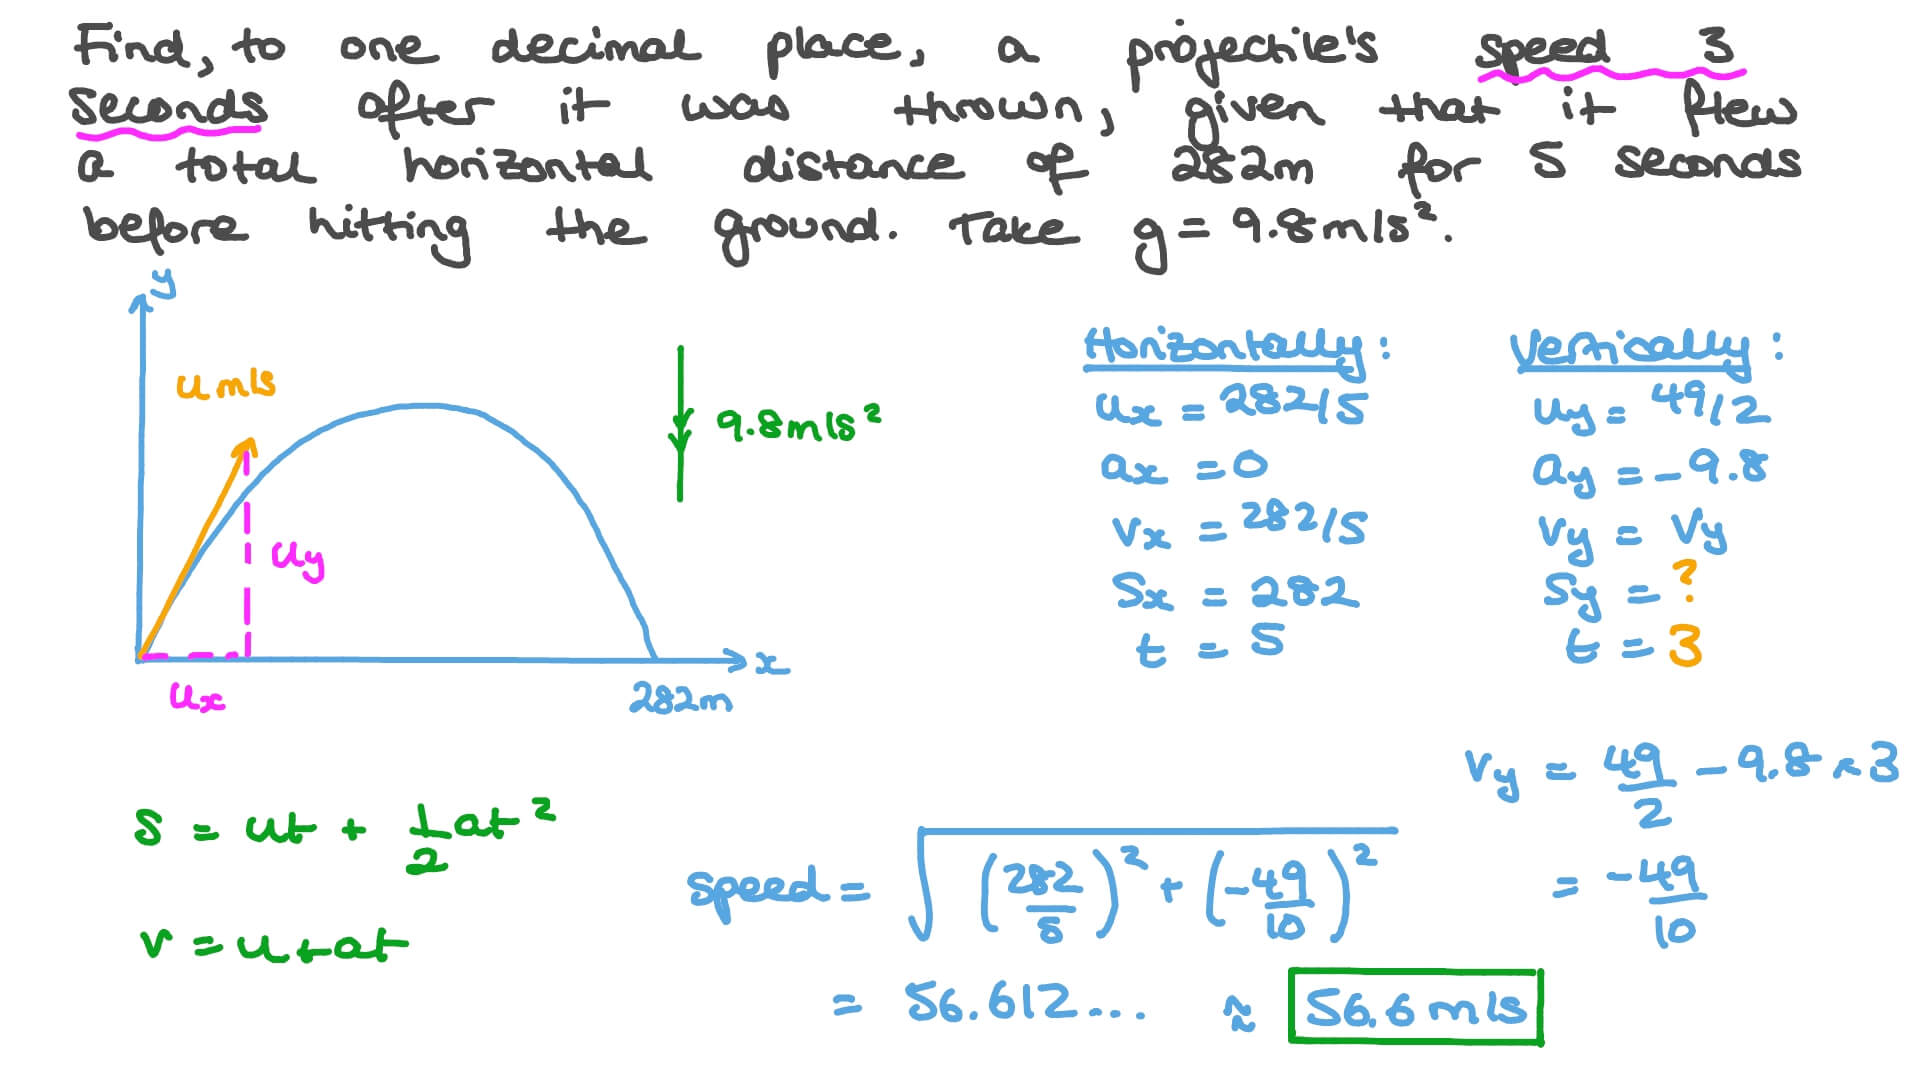 Find, to one decimal place, a projectile's speed 3
seconds after it was thrown, given that it flew
a total horizontal distance of 282m for 5 seconds
before hitting the ground. Take g = 9.8m/s².
y
u m/s
9.8m/s²
uy
ux
282m
x
Horizontally:
ux = 282/5
ax = 0
vx = 282/5
Sx = 282
t = 5
Vertically:
uy = 49/2
ay = -9.8
vy = vy
Sy = ?
t = 3
S = ut + 1/2 at²
v = u+at
vy = 49/2 - 9.8 × 3
= -49/10
speed = √((282/5)² + (-49/10)²)
= 56.612... ≈ 56.6 m/s